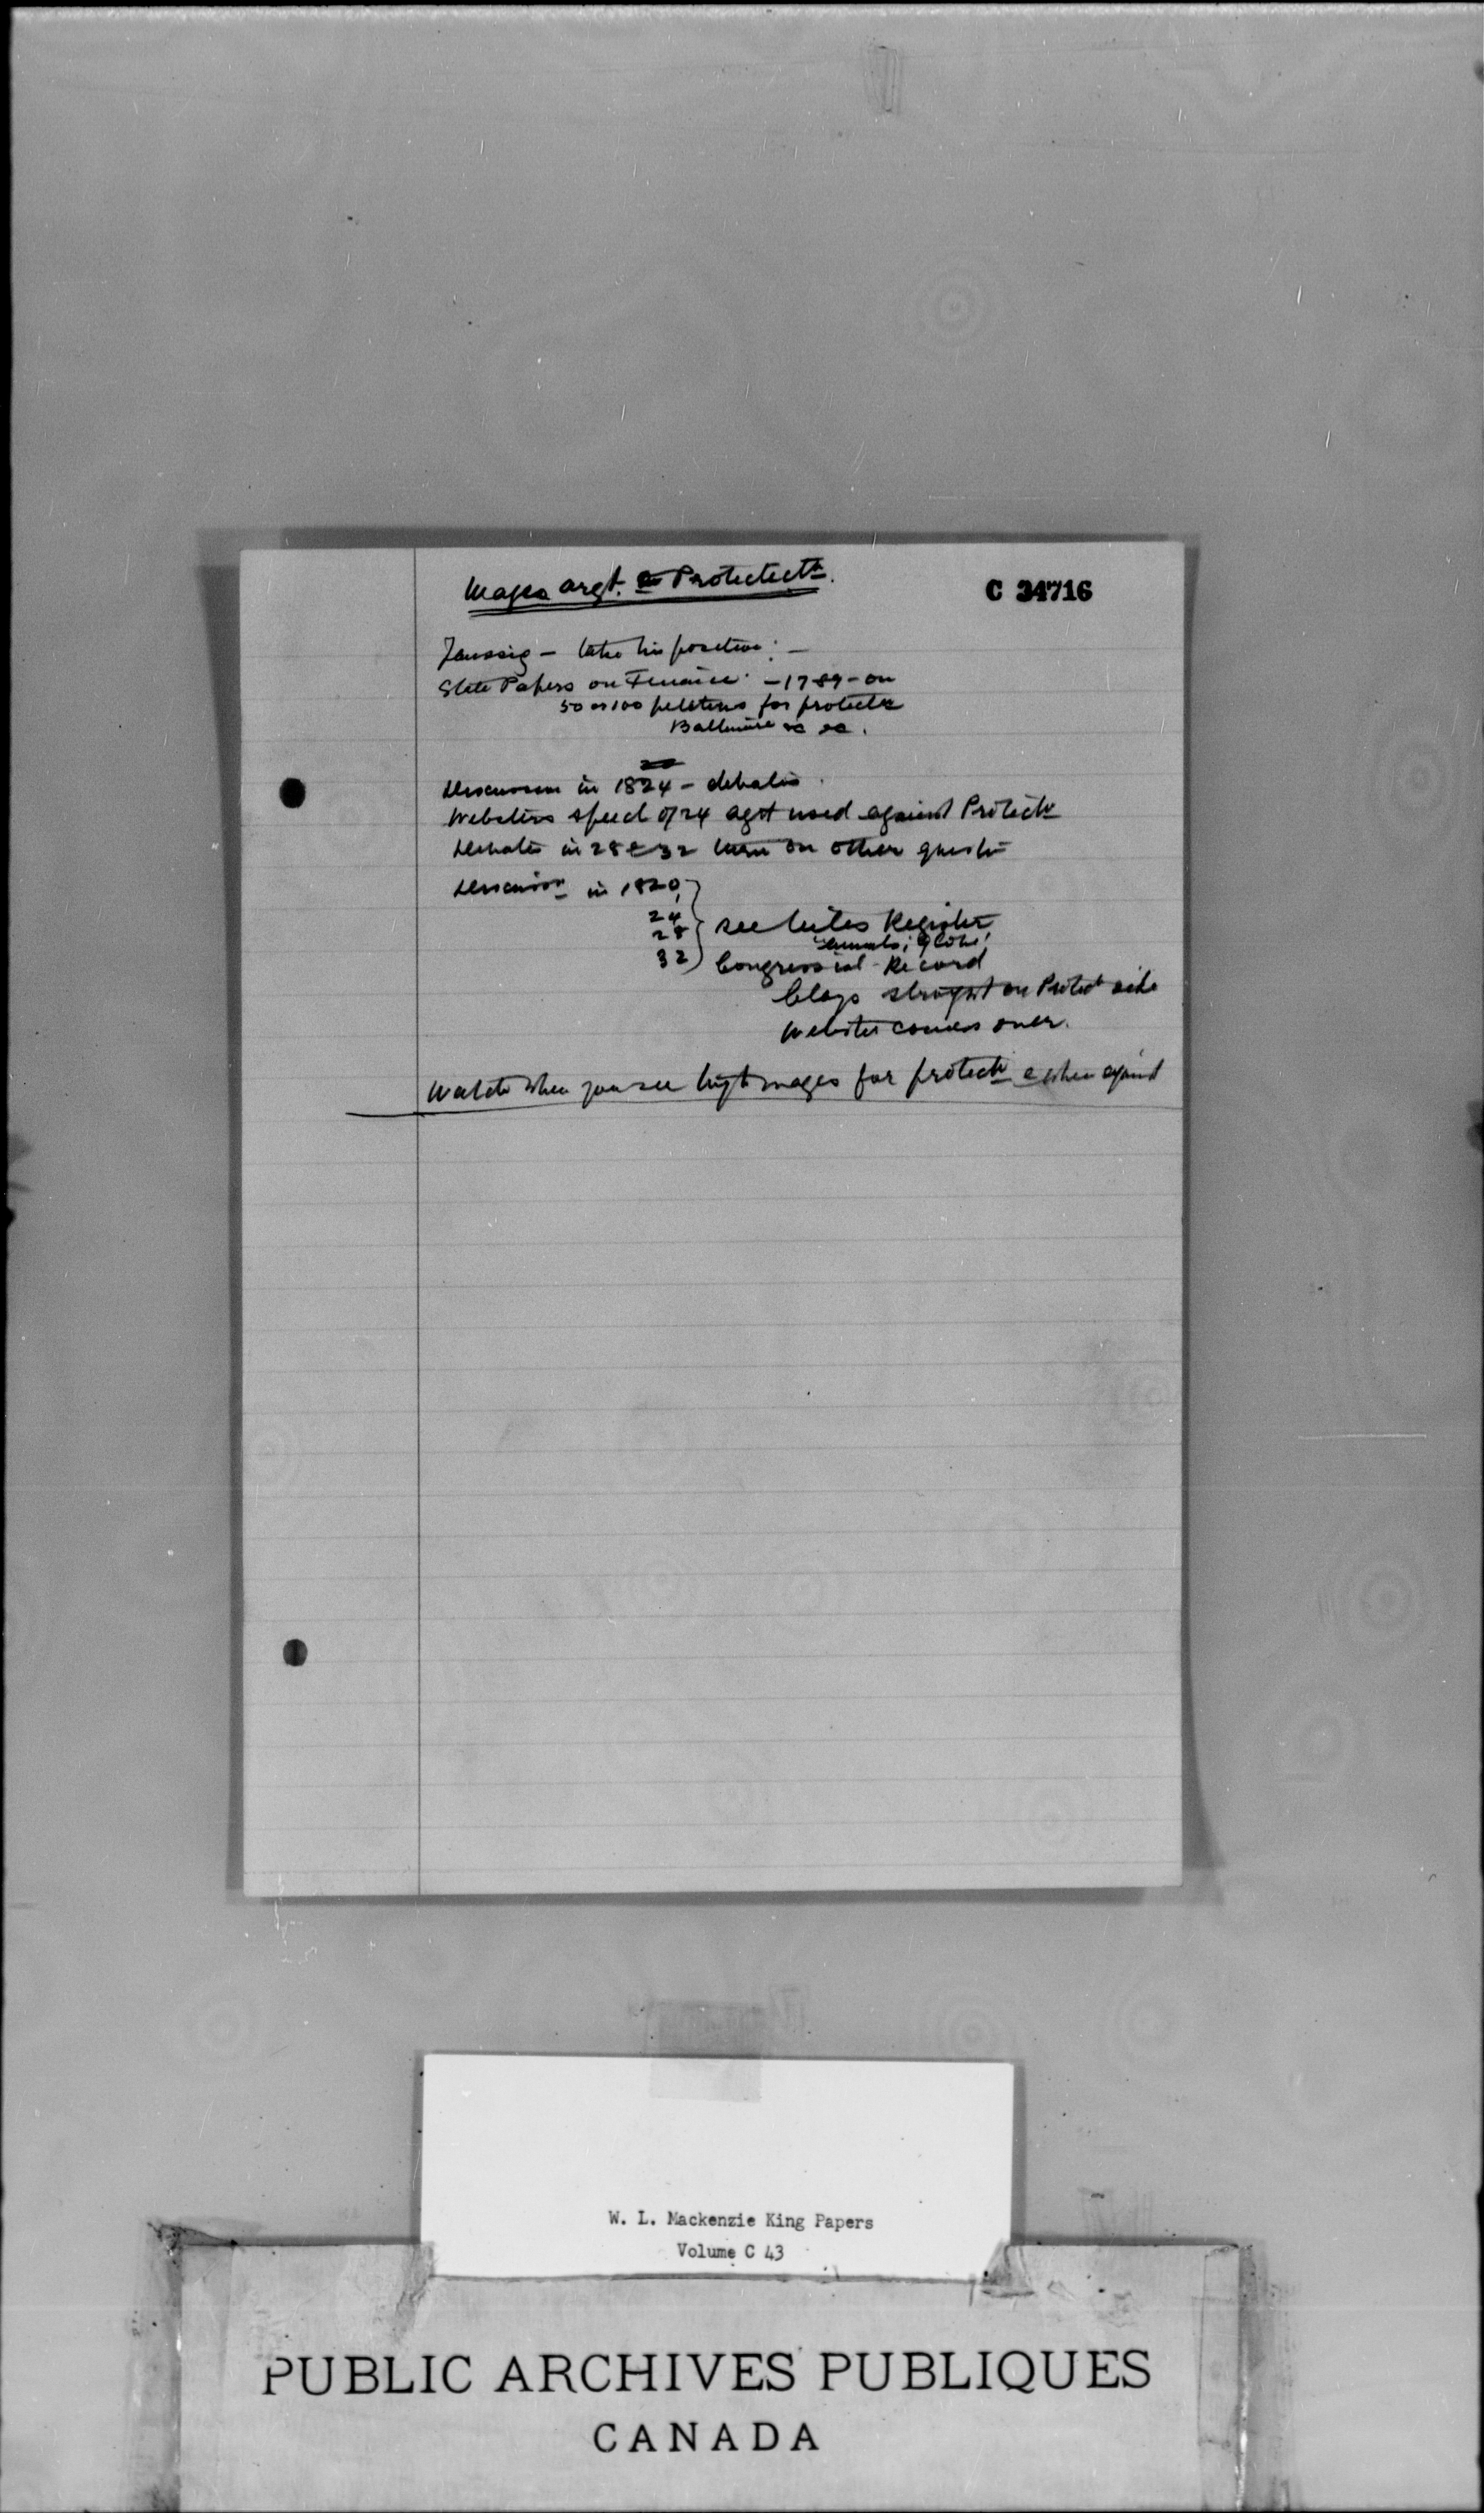 Wages argt. & Protectectn.
C 34716
Taussig – take his position: –
State Papers on Finance. – 1789 – on
50 or 100 petitions for protectn
Baltimore &c &c.
Discussion in 1824 – debates.
Websters speech of 24 agst used against Protectn
Debates in 28 & 32 turn on other questn
Discussion in 1820,
24
28
32
see Niles Register,
Annals; Globe;
Congressional Record
Clays strongest on Protect side
Webster comes over.
Watch when you see high wages for protectn & when against
W. L. Mackenzie King Papers
Volume C 43
PUBLIC ARCHIVES PUBLIQUES
CANADA